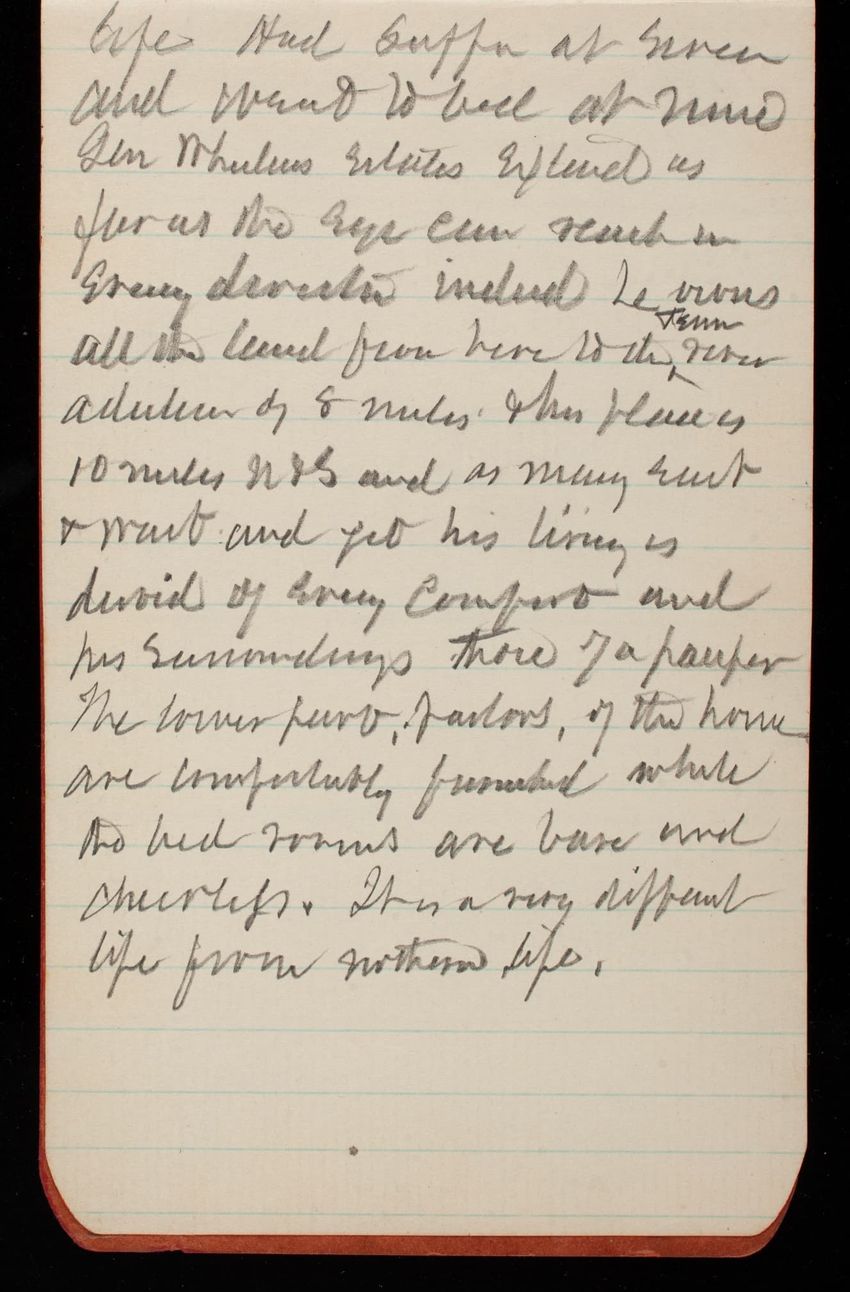 life Had Supper at Seven
and went to bed at nine
Gen Wheelers Estates Extend as
far as the Eye can reach in
Every direction indeed he owns
all the land from here to the Tenn river
a distance of 8 miles & this place is
10 miles N & S and as many East
& West and yet his living is
devoid of Every Comfort and
his surroundings those of a pauper
The lower part, parlors, of the house
are comfortably furnished while
the bed rooms are bare and
cheerless. It is a very different
life from nothern life.